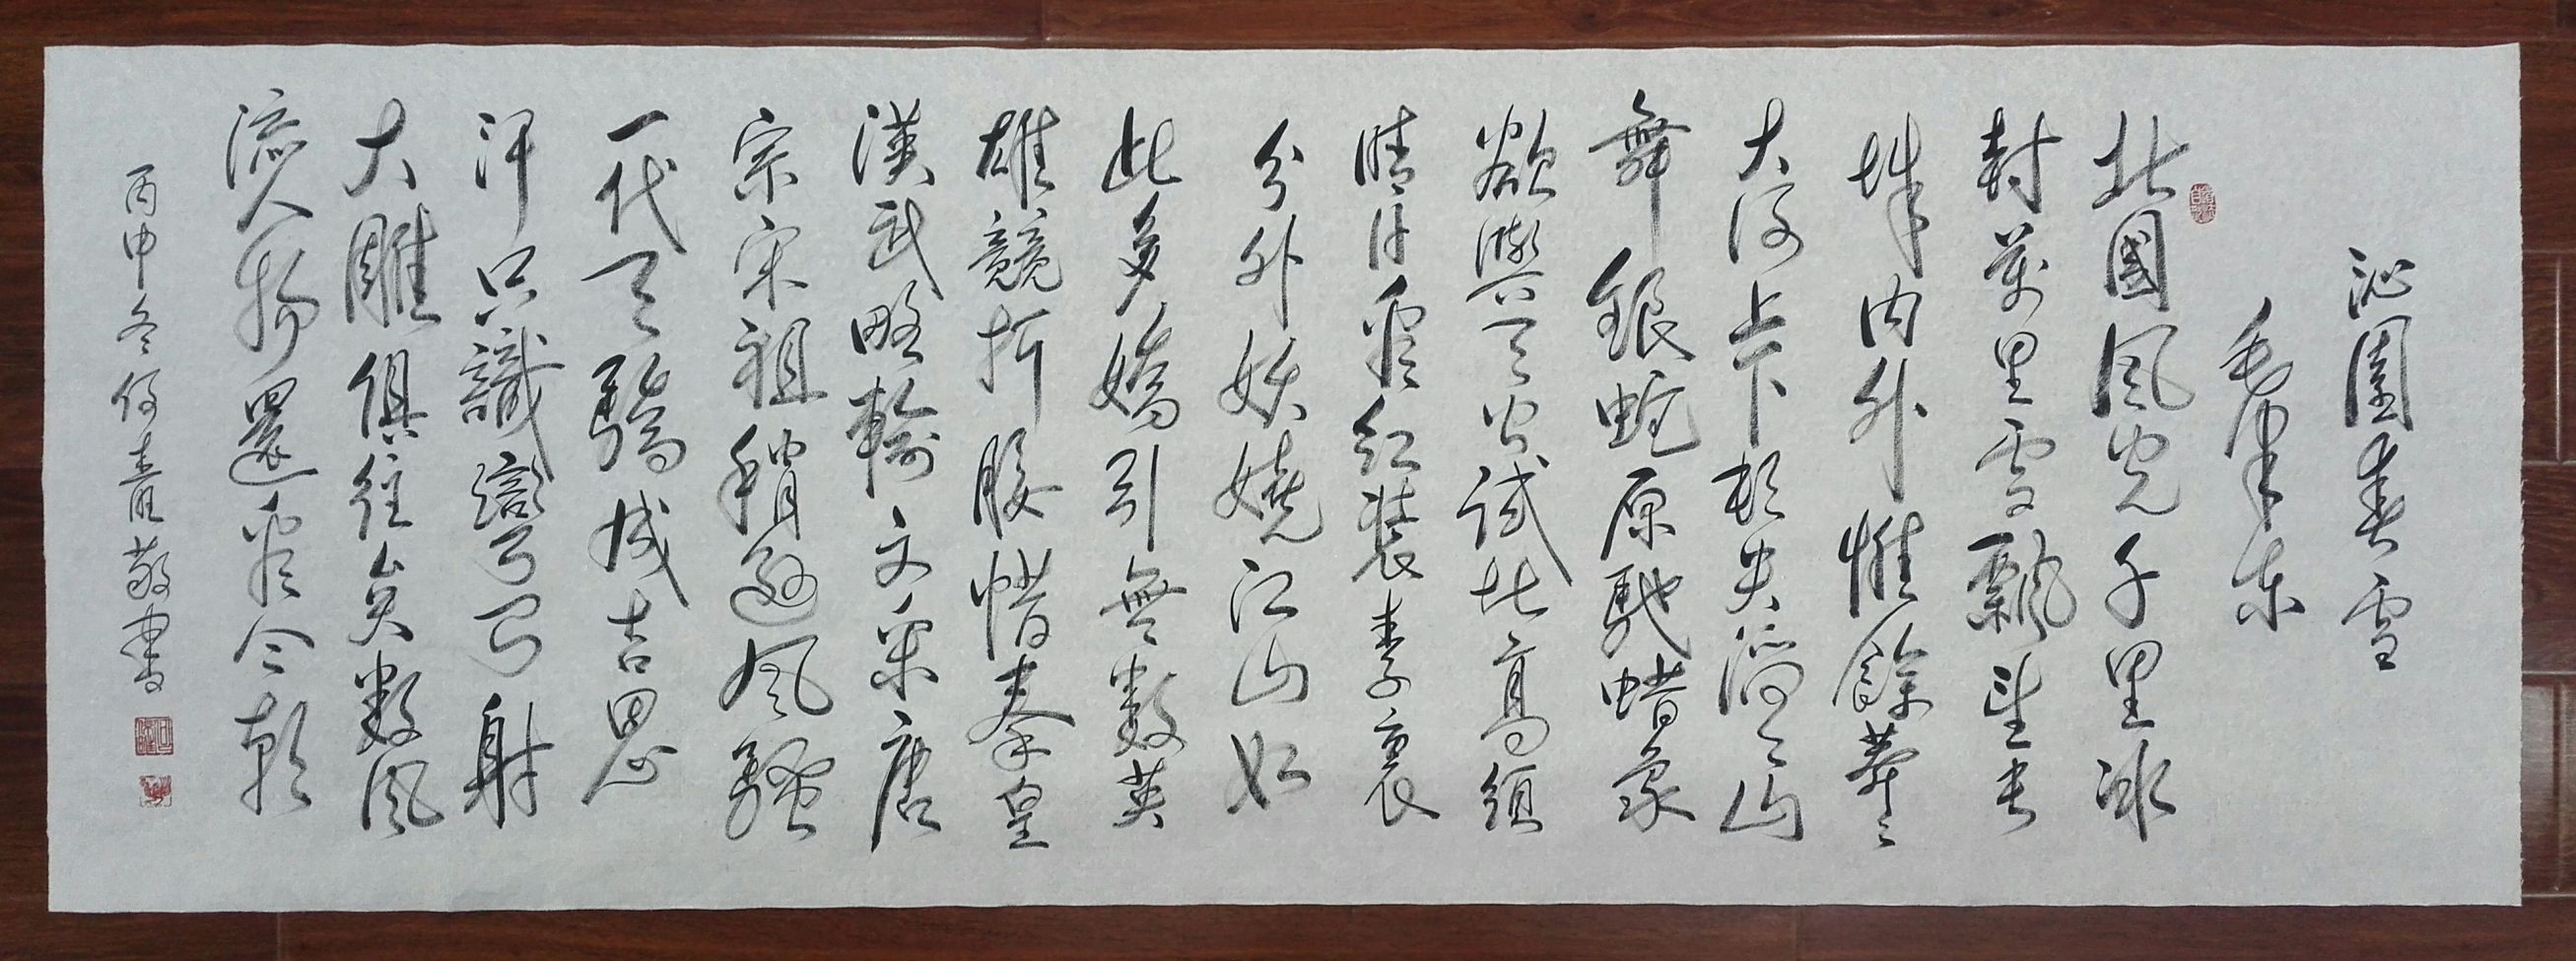 沁園春雪
毛澤東
北國風光千里冰
封萬里雪飄望長
城內外惟餘莽々
大河上下頓失滔々山
舞銀蛇原馳蜡象
欲與天公試比高須
晴日看紅裝素裹
分外妖嬈江山如
此多嬌引無數英
雄競折腰惜秦皇
漢武略輸文采唐
宗宋祖稍遜風騷
一代天驕成吉思
汗只識彎弓射
大雕俱往矣數風
流人物還看今朝
丙申冬何青敬書